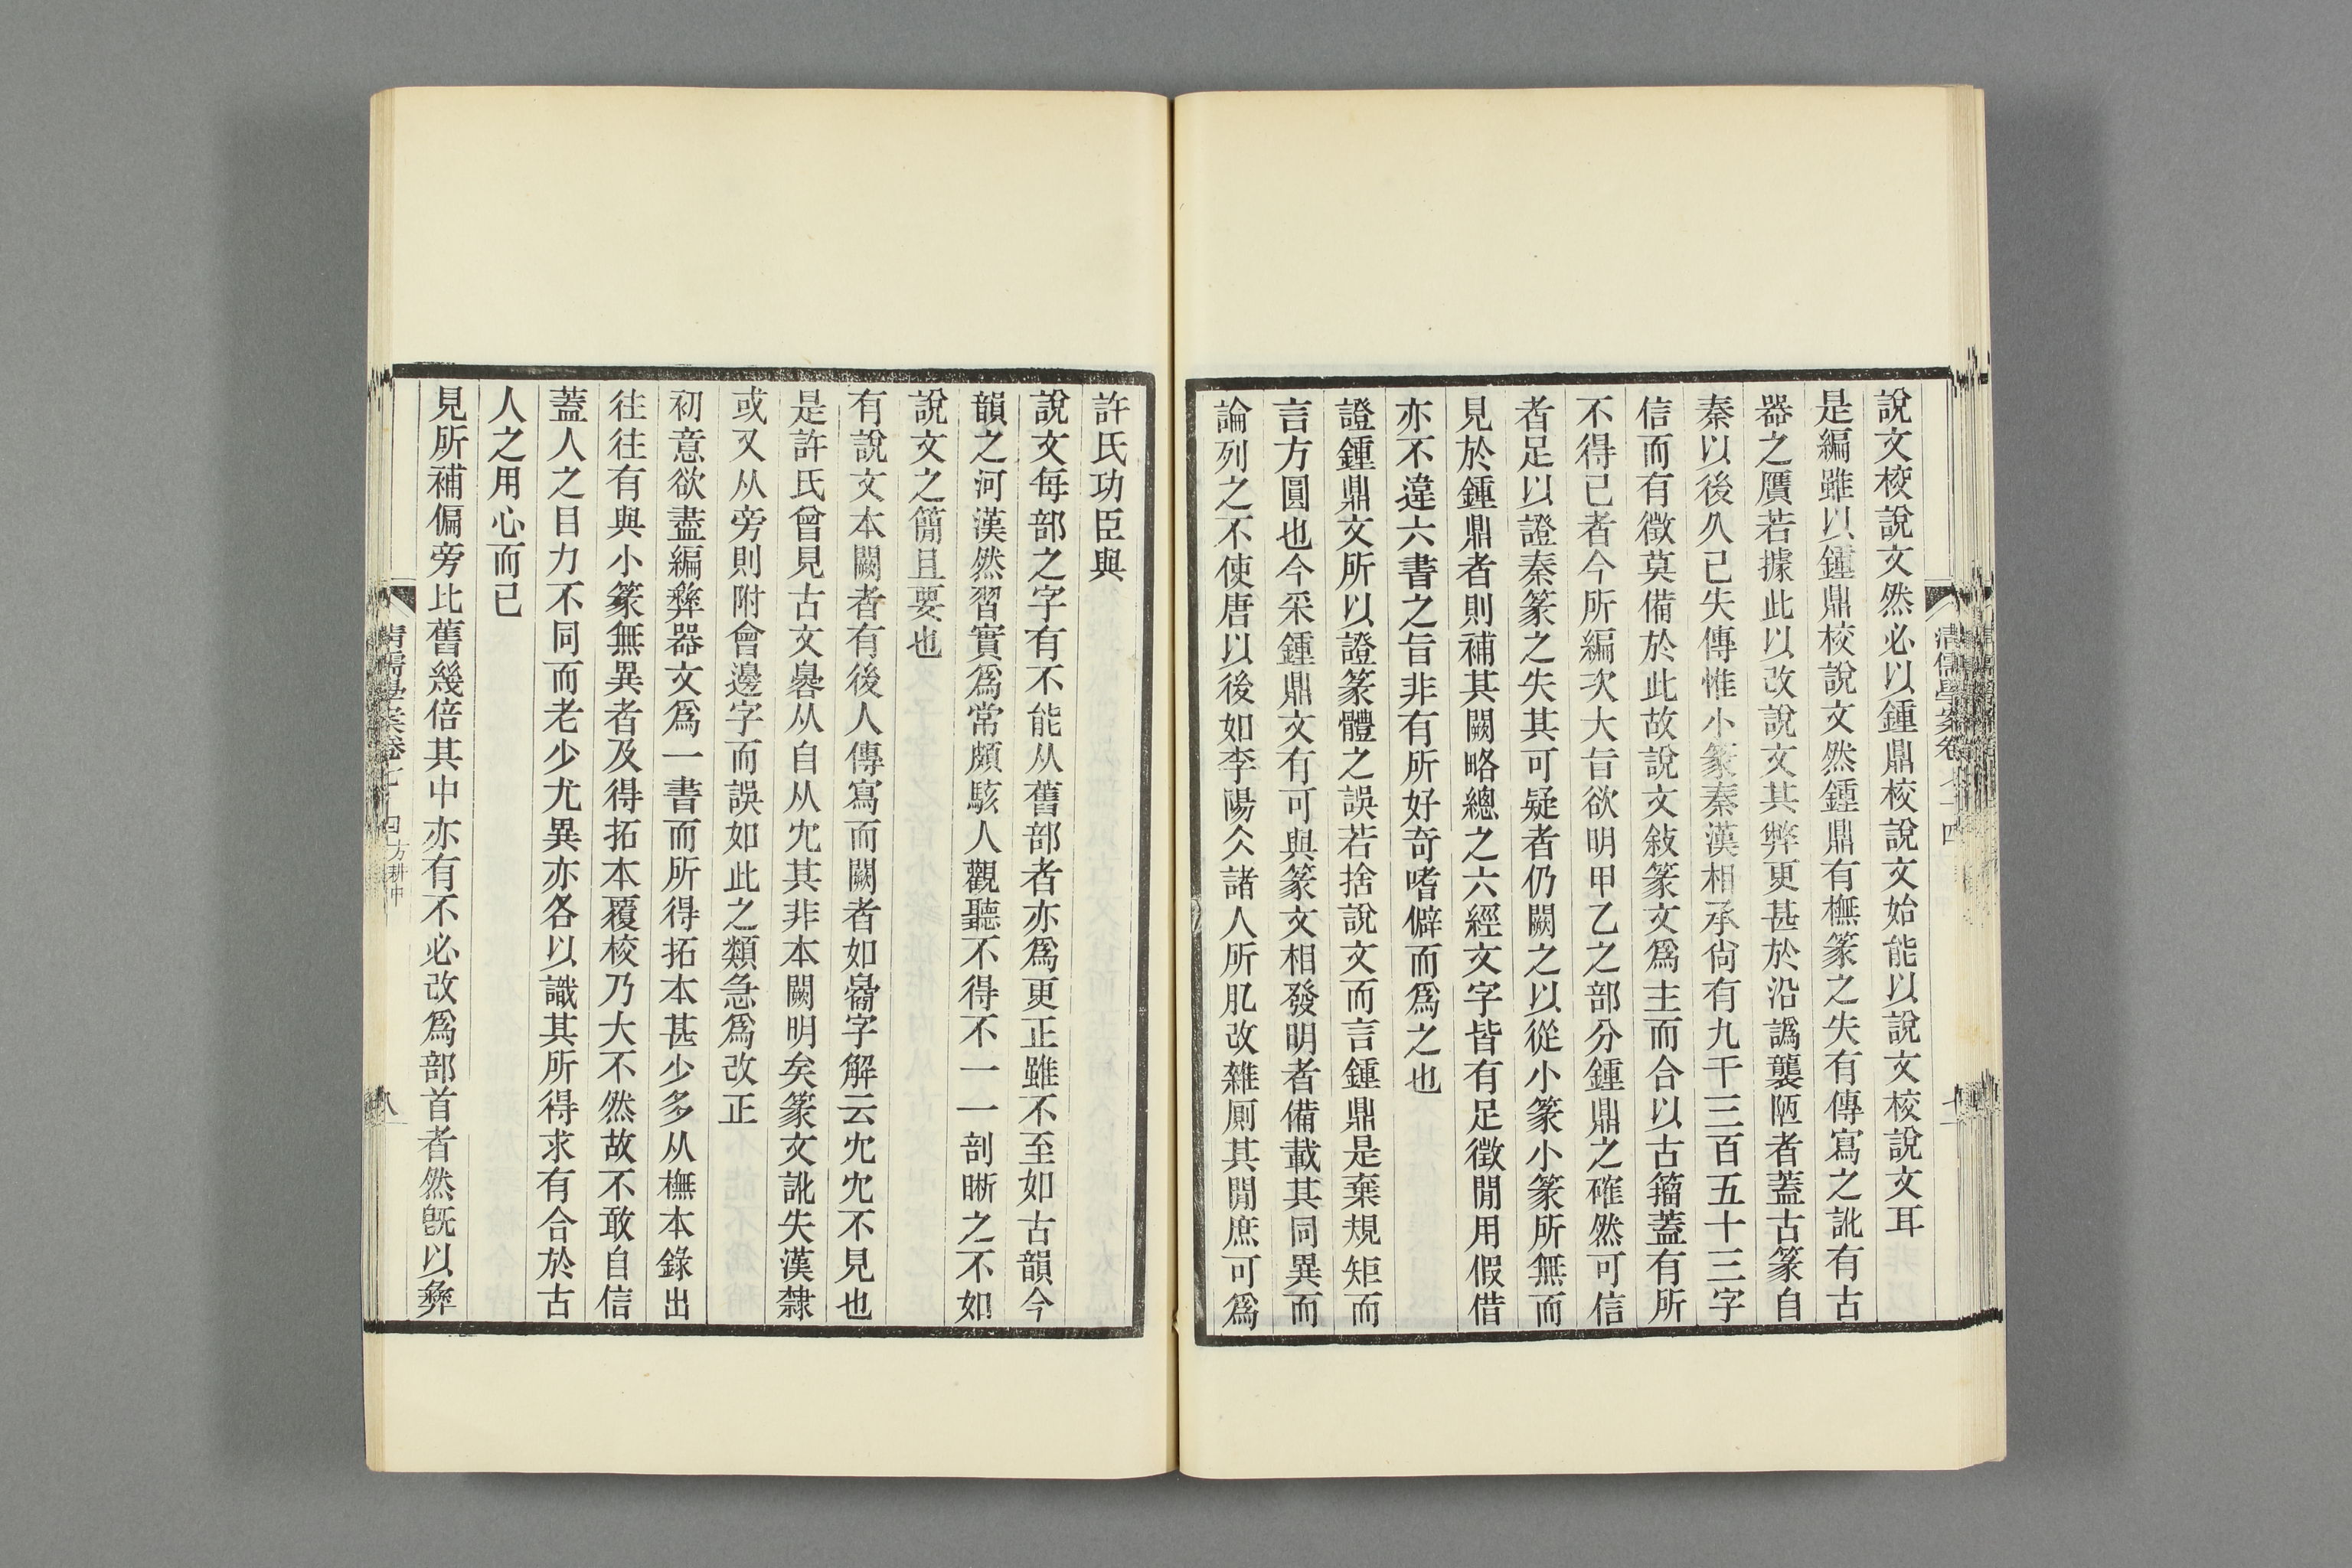 說文校說文然必以鍾鼎校說文始能以說文校說文耳
是編雖以鍾鼎校說文然鍾鼎有橅篆之失有傳寫之訛有古
器之贋若據此以改說文其弊更甚於沿譌襲陋者蓋古篆自
秦以後久已失傳惟小篆秦漢相承尙有九千三百五十三字
信而有徵莫備於此故說文敍篆文爲主而合以古籀蓋有所
不得已者今所編次大旨欲明甲乙之部分鍾鼎之確然可信
者足以證秦篆之失其可疑者仍闕之以從小篆小篆所無而
見於鍾鼎者則補其闕略總之六經文字皆有足徵閒用假借
亦不違六書之旨非有所好奇嗜僻而爲之也
證鍾鼎文所以證篆體之誤若捨說文而言鍾鼎是棄規矩而
言方圓也今采鍾鼎文有可與篆文相發明者備載其同異而
論列之不使唐以後如李陽仌諸人所肊改雜厠其閒庶可爲
許氏功臣與
說文每部之字有不能从舊部者亦爲更正雖不至如古韻今
韻之河漢然習實爲常頗駭人觀聽不得不一一剖晰之不如
說文之簡且要也
有說文本闕者有後人傳寫而闕者如臱字解云宀宀不見也
是許氏曾見古文臱从自从宀其非本闕明矣篆文訛失漢隸
或又从旁則附會邊字而誤如此之類急爲改正
初意欲盡編彝器文爲一書而所得拓本甚少多从橅本錄出
往往有與小篆無異者及得拓本覆校乃大不然故不敢自信
蓋人之目力不同而老少尤異亦各以識其所得求有合於古
人之用心而已
見所補偏旁比舊幾倍其中亦有不必改爲部首者然旣以彝
清儒學案卷七十四
八